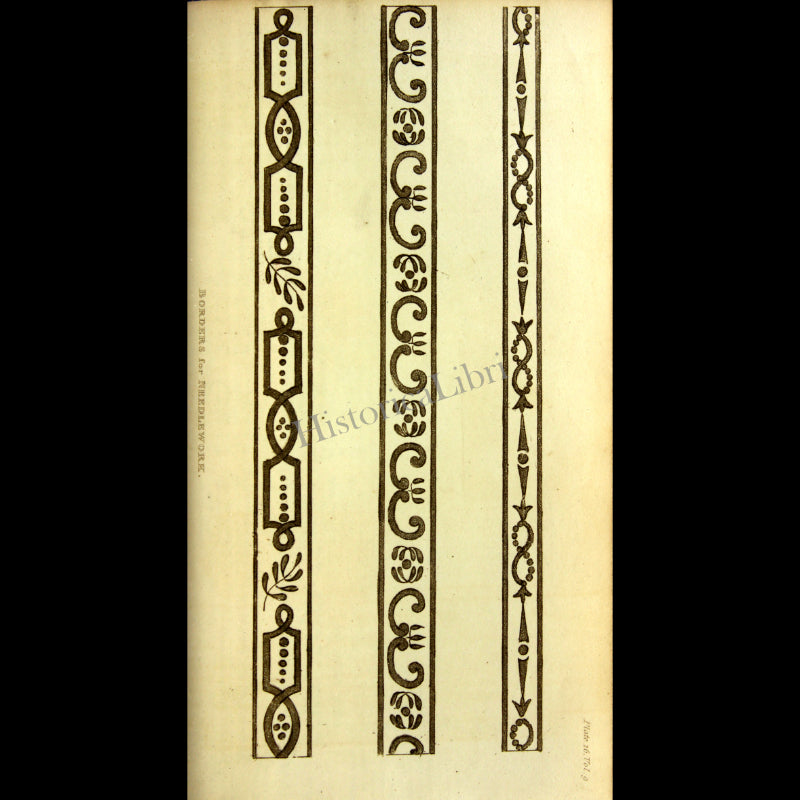 Plate 16. Vol 9
BORDERS for NEEDLEWORK.
HistoricaLibris